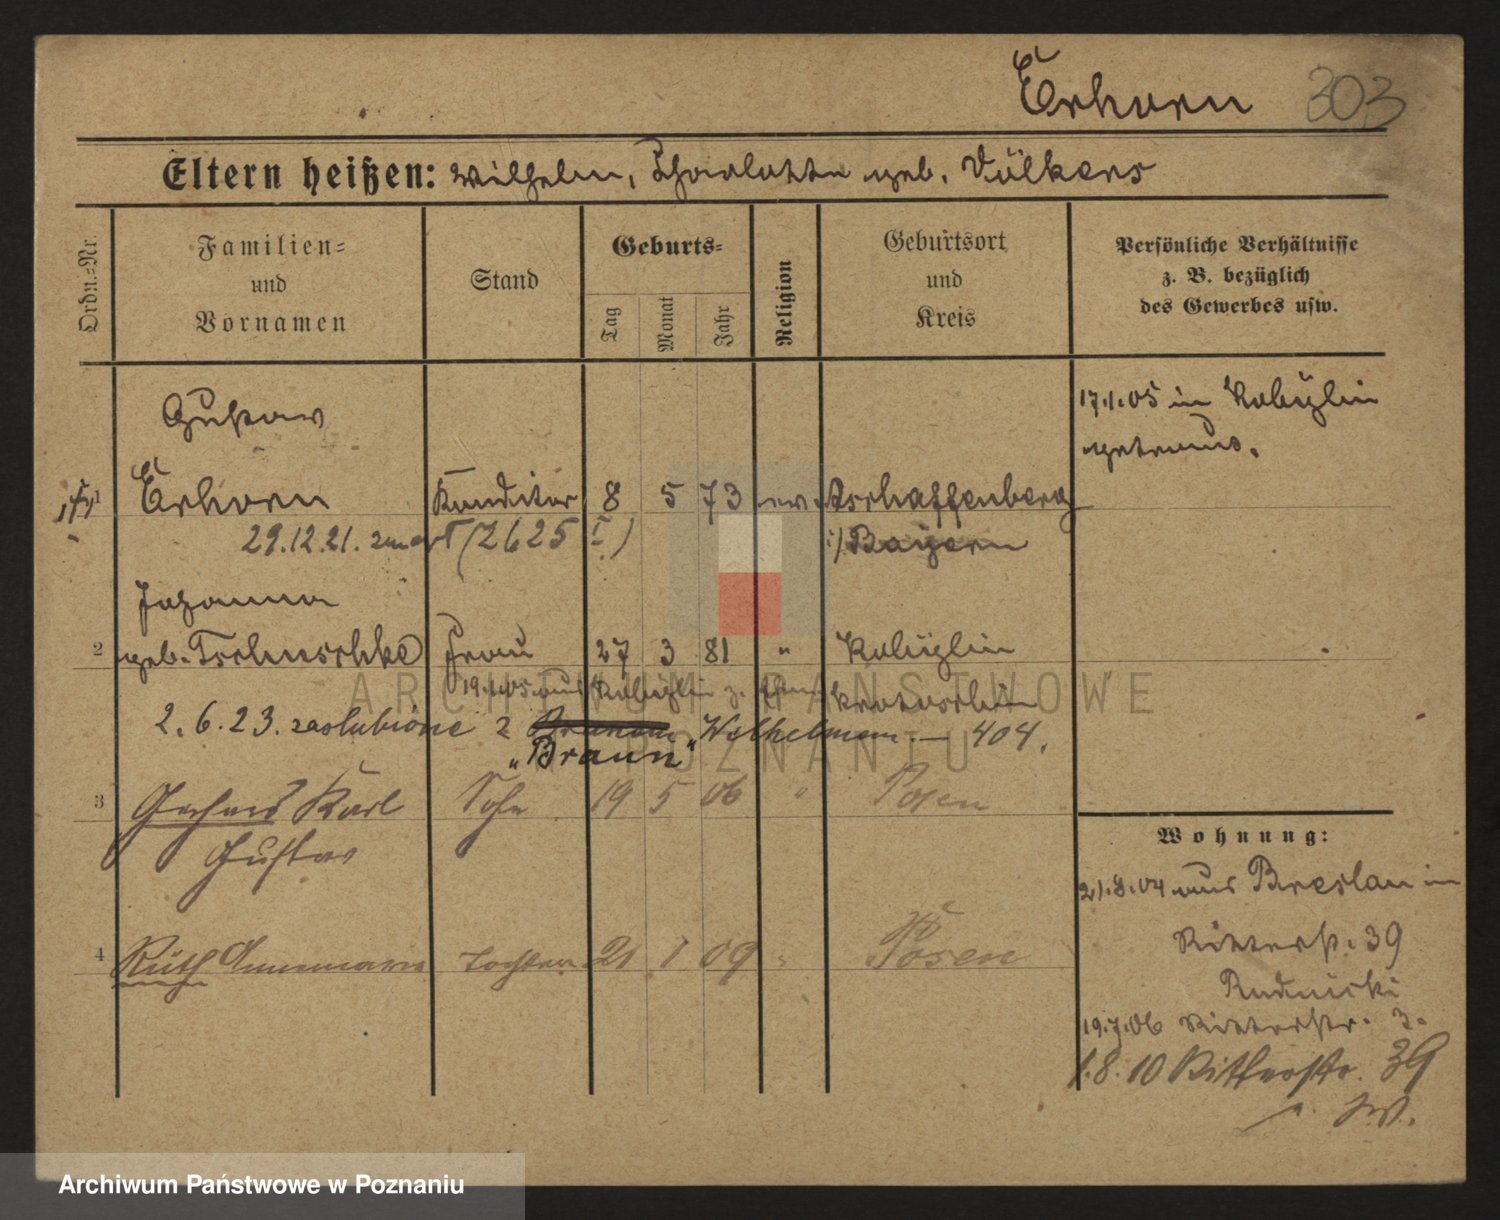 Erhorn 303
Eltern heißen: Wilhelm, Charlotte geb. Völkers
Ordn.=Nr.
Familien=
und
Vornamen
Stand
Geburts=
Tag
Monat
Jahr
Religion
Geburtsort
und
Kreis
Persönliche Verhältnisse
z. B. bezüglich
des Gewerbes usw.
17.1.05 in Kobylin
getraut.
Gustav
1 Erhorn Konditor 8 5 73 ev. Aschaffenburg
29.12.21. zmarł (2625 I) i/Bayern
Johanna
2 geb. Tschuschke Frau 27 3 81 " Kobylin
19.1.05 aus Kobylin Krotoschin
2.6.23. zaślubiona z Wilhelmem. — 404.
"Braun"
3 Gerhard Karl Sohn 19 5 06 " Posen
Gustav
4 Ruth Annemarie Tochter 21 1 09 " Posen
Wohnung:
21.8.04 aus Breslau in
Ritterstr. 39
Rudnicki
19.7.06 Ritterstr. 3.
1.8.10 Ritterstr. 39
ARCHIWUM PAŃSTWOWE
W POZNANIU
Archiwum Państwowe w Poznaniu